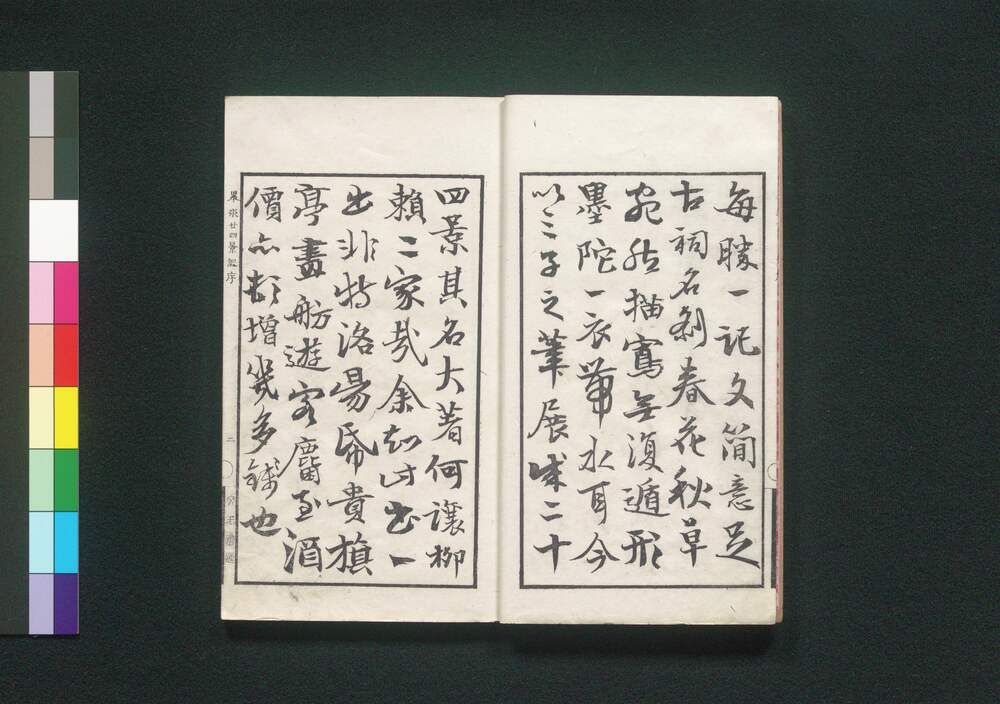 毎勝一記文簡意足
古祠名刹春花秋草
宛然描寫無復遁形
墨陀一衣帶水耳今
以三子之筆展成二十
四景其名大著何讓柳
賴二家哉余知此書一
出非特洛陽帋貴旗
亭畫舫遊客麕至酒
價亦頓增幾多錢也
墨水廿四景記序
二